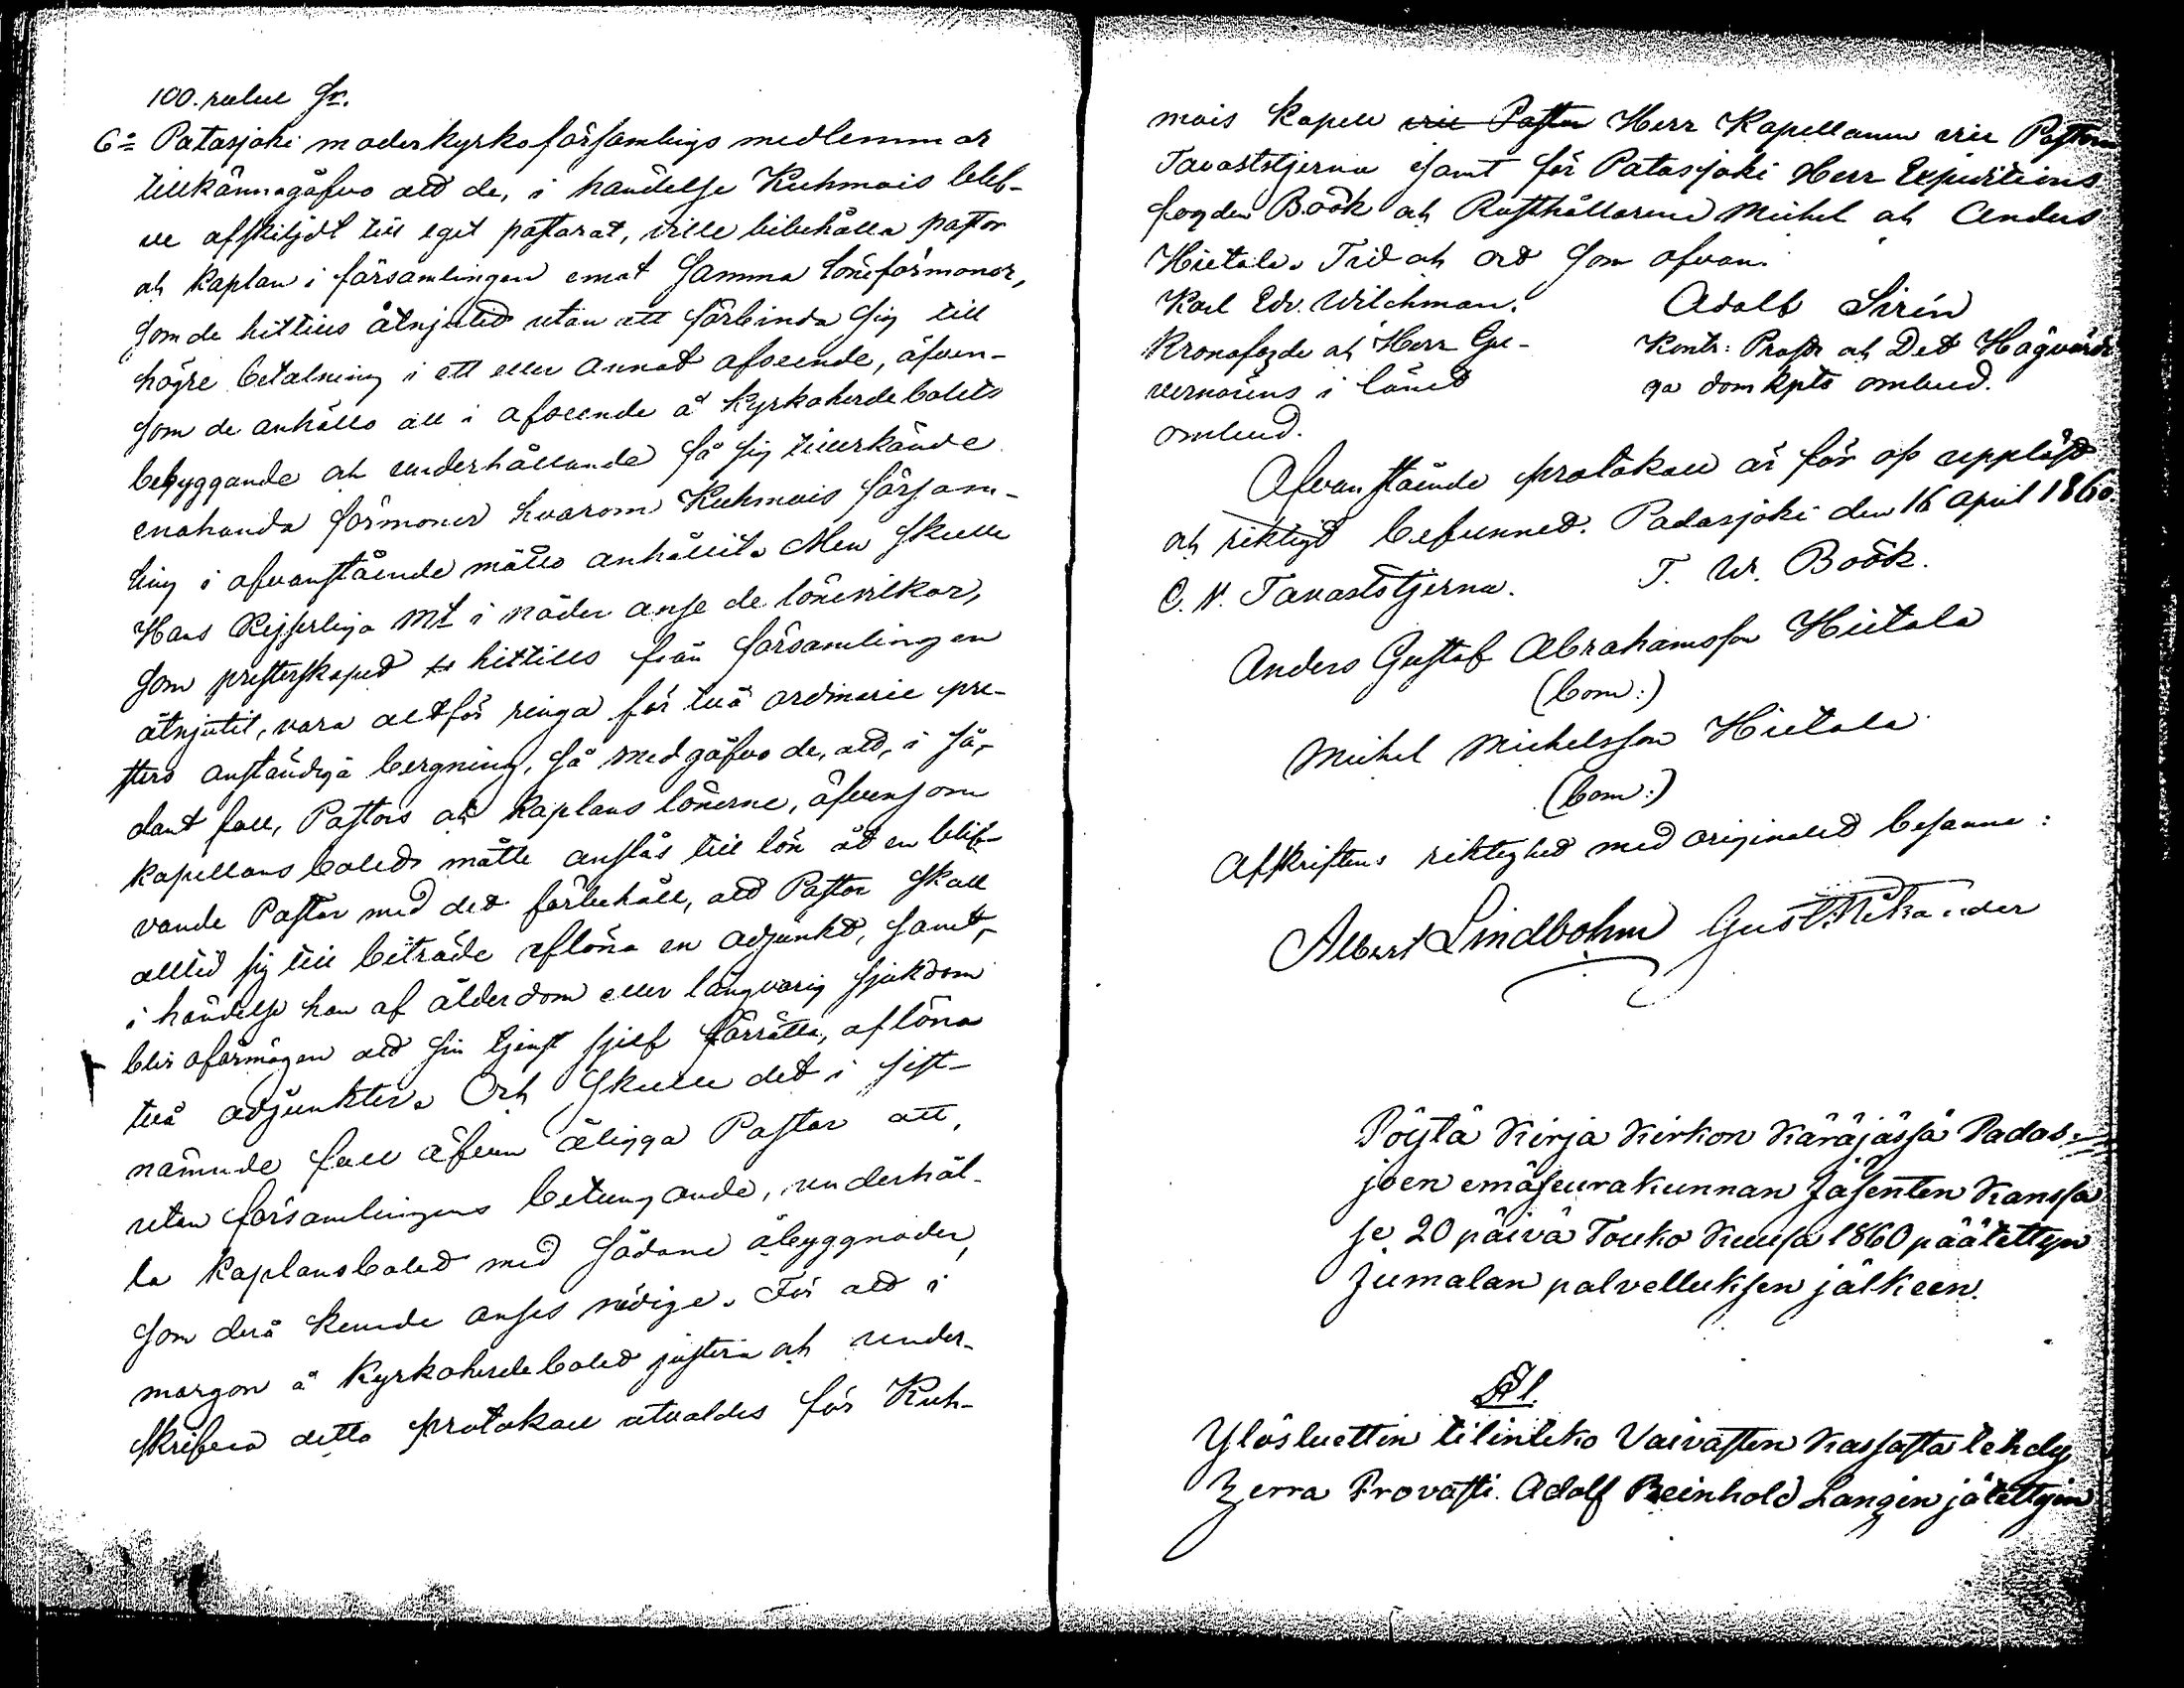 100. rubel Sr.
6:o Patasjoki moderkyrkoförsamlings medlemmar
tillkännagåfvo att de, i händelse Kuhmois blef-
ve afskiljdt till eget pastorat, ville bibehålla pastor
och kaplan i församlingen emot samma löneförmoner,
som de hittills åtnjutit utan att förbinda sig till
högre betalning i ett eller annat afseende, äfven-
som de anhöllo att i afseende å kyrkoherdebolets
bebyggande och underhållande få sig tillerkände
enahanda förmoner hvarom Kuhmois försam-
ling i ofvanstående måtto anhållit. Men skulle
Hans Kejserliga Mt i nåder anse de lönevilkor,
som presterskapet hittills från församlingen
åtnjutit, vara alltför ringa för två ordinarie pre-
sters anständiga bergning, så medgåfvo de, att, i så-
dant fall, Pastors och kaplans lönerne, äfvensom
kapellans bolet måtte anslås till lön åt en blif-
vande Pastor med det förbehåll, att Pastor skall
alltid sig till biträde aflöna en adjunkt, samt,
i händelse han af ålderdom eller långvarig sjukdom
blir oförmögen att sin tjenst sjelf förrätta, aflöna
två adjunkter. Och skulle det i sist-
nämnde fall äfven åligga Pastor att,
utan församlingens betungande, underhål-
la kaplansbolet med sådane åbyggnader,
som derå kunde anses nödige. För att i
morgon å Kyrkoherdebolet justera och under-
skrifva detta protokoll utvaldes för Kuh-
mois kapell vice Pastor Herr Kapellanen vice Pastorn
Tavaststjerna samt för Patasjoki Herr Expeditions
fogden Böök och Rusthållarene Michel och Anders
Hietala. Tid och ort som ofvan.
Karl Edv. Wilchman. Adolf Sirén
Kronofogde och Herr Gu- Kontr: Prost och Det Högvördi
vernörens i länet ga domkpts ombud.
ombud.
Ofvanstående protokoll är för oss uppläst
och riktigt befunnet. Padasjoki den 16 april 1860.
C. N. Tavaststjerna. T. W. Böök.
Anders Gustaf Abrahamsson Hietala
(bom:)
Michel Michelsson Hietala
(bom:)
Afskriftens riktighet med originalet besanna:
Albert Lindbohm Gust. Nikander
Pöytä Kirja Kirkon Käräjässä Padas-
joen emäseurakunnan Jäsenten Kanssa
se 20 päivä Touko Kuusa 1860 päätettyn
Jumalan palvelluksen jälkeen.
§ 1.
Ylösluettin tilinteko Vaivasten Kassasta tehdy
Herra Provasti Adolf Reinhold Langin jätettyin